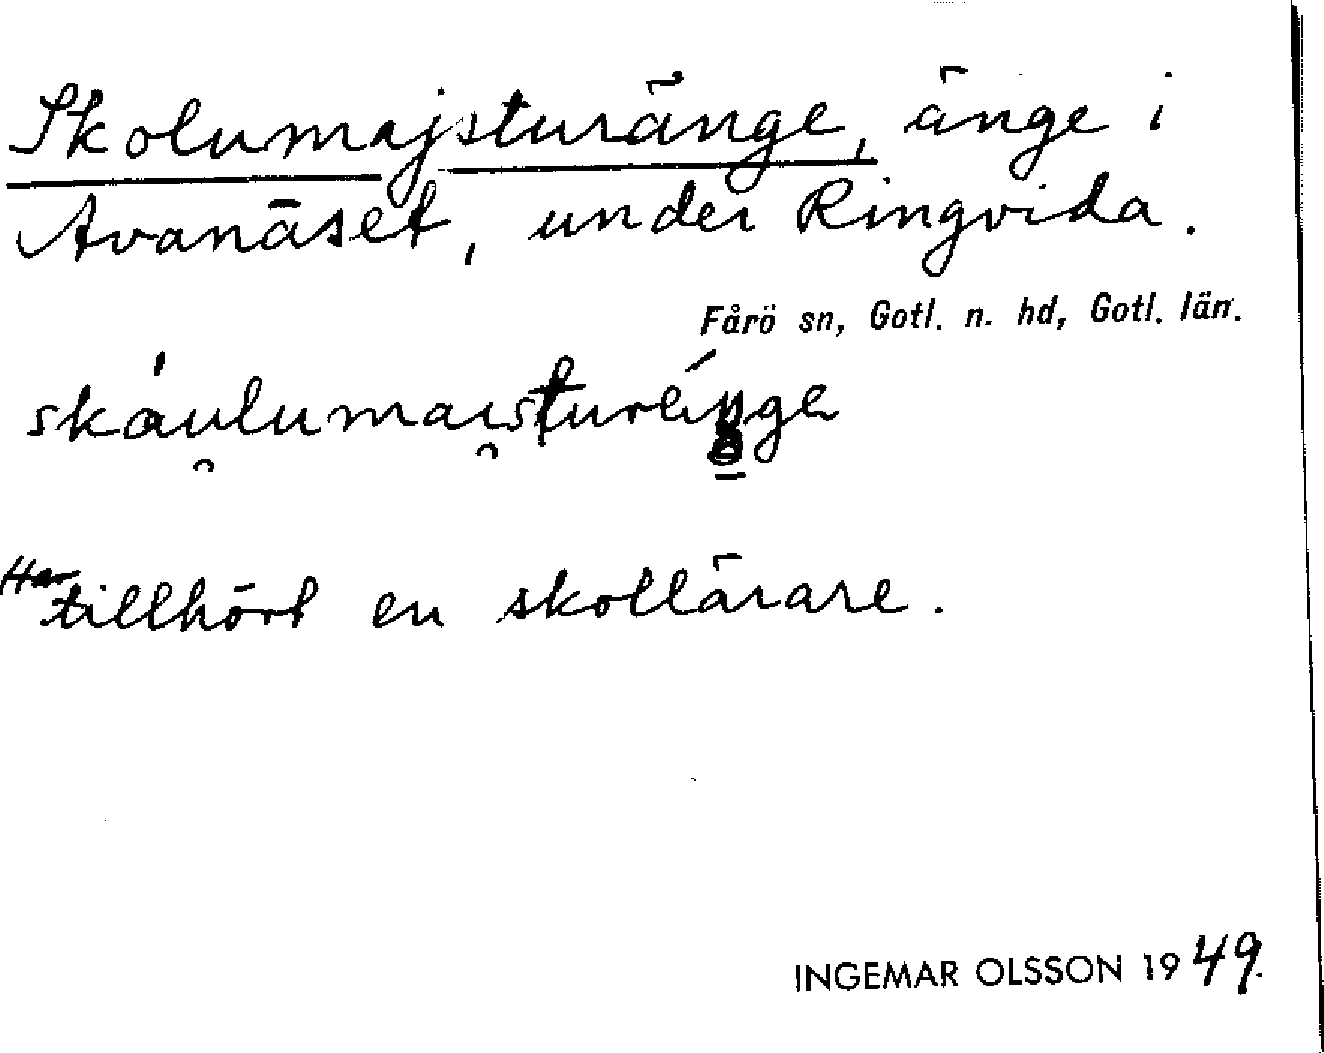 Skolumajsturänge, änge i
Avanäset, under Ringvida.
Fårö sn, Gotl. n. hd, Gotl. län.
Har tillhört en skollärare.
INGEMAR OLSSON 1949.